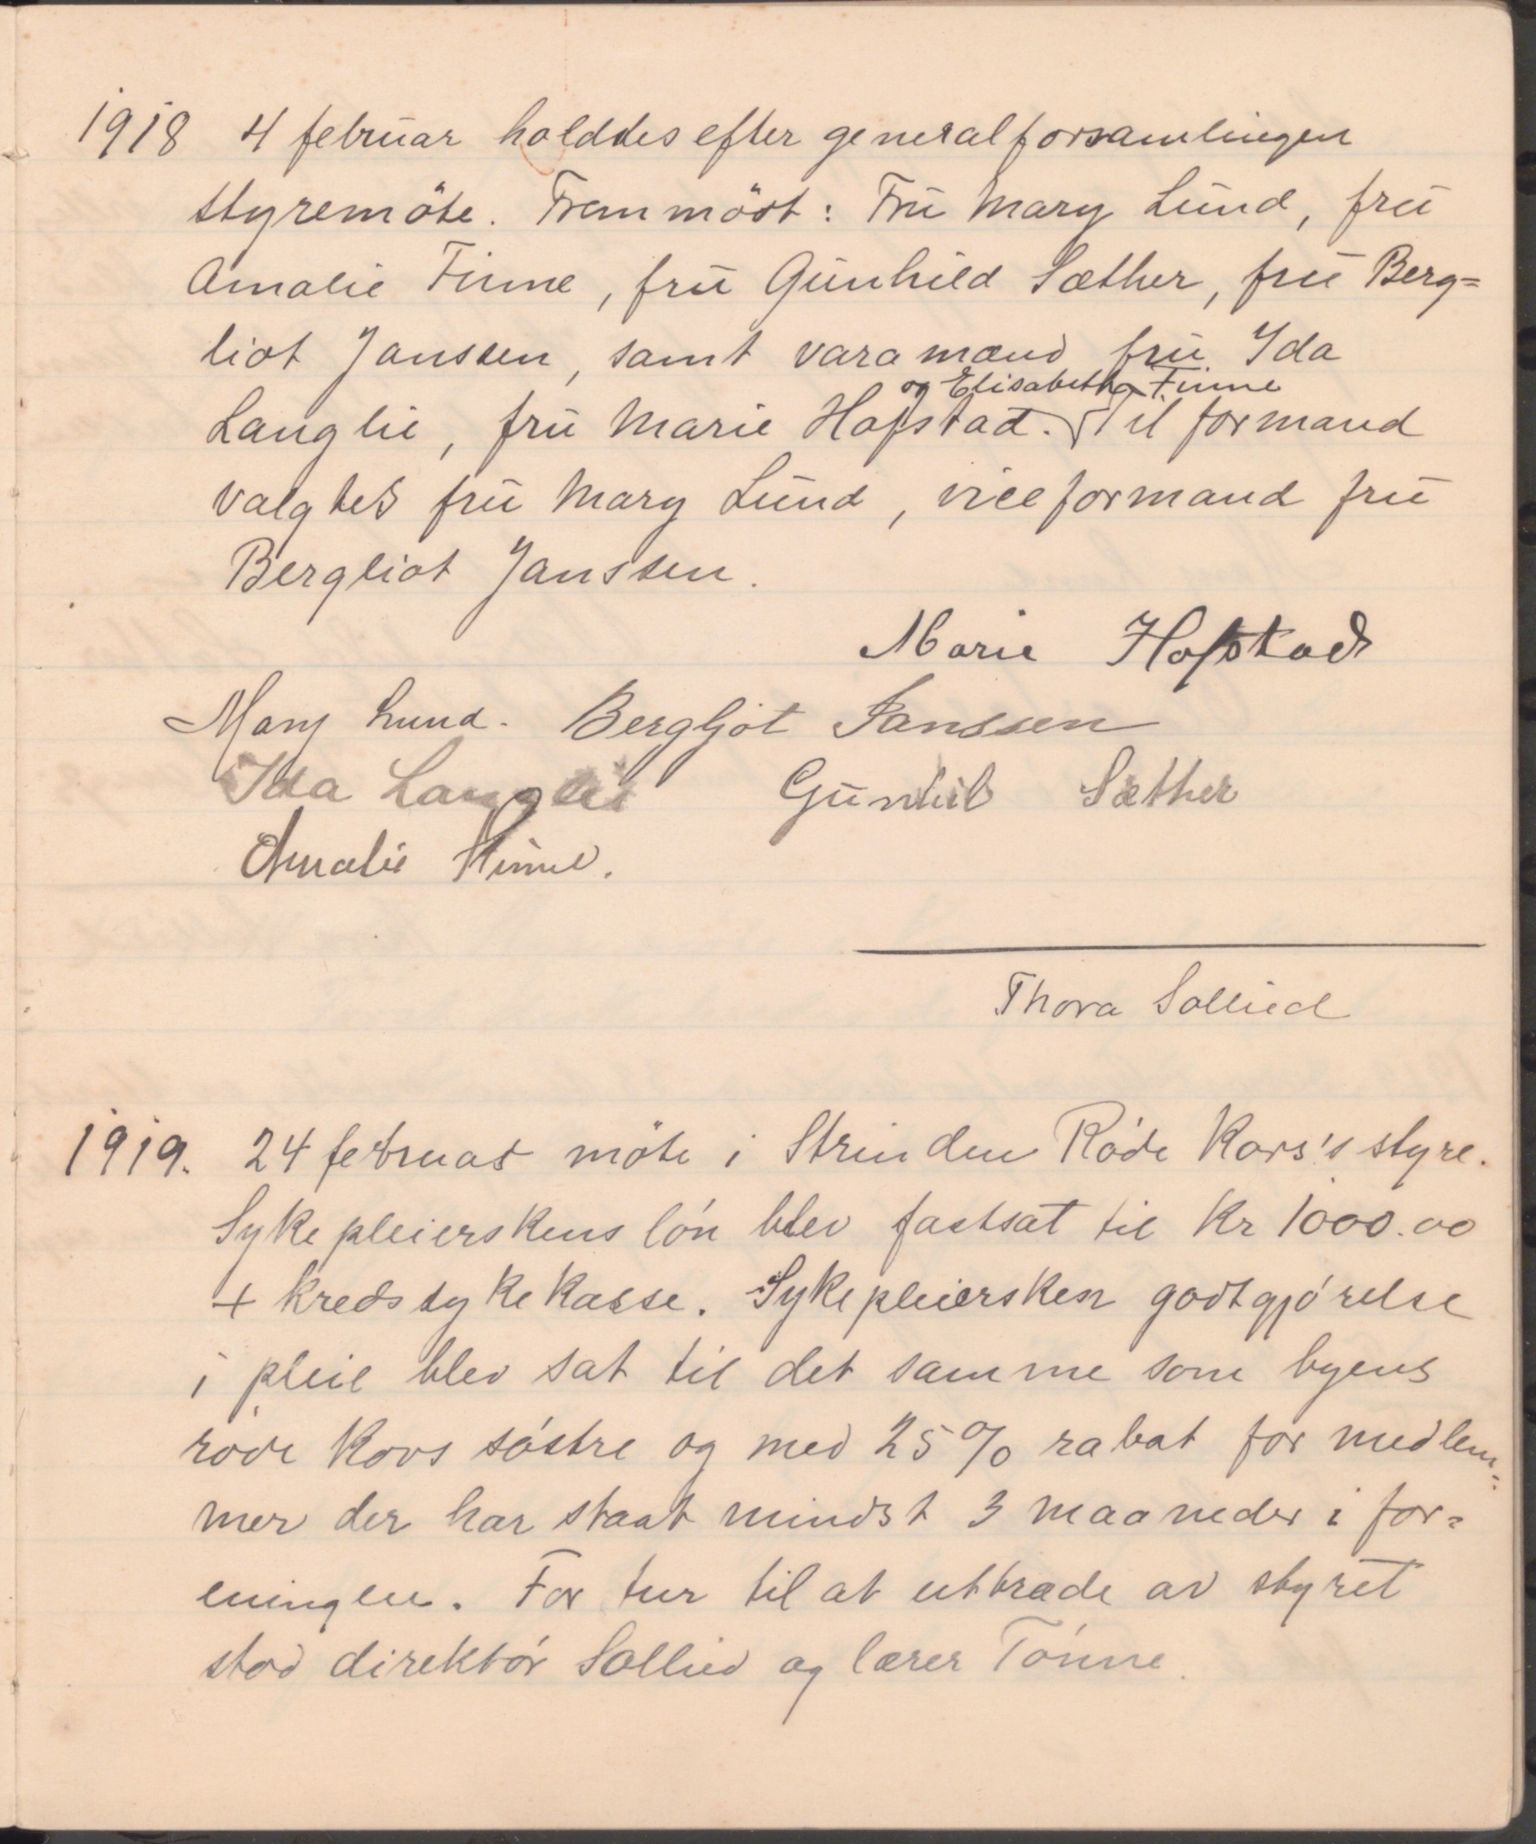 1918 4 februar holdtes efter generalforsamlingen
styremöte. Fremmödt: Fru Mary Lund, fru
Amalie Finne, fru Gunhild Sæther, fru Berg=
liot Janssen, samt varamænd fru Ida
og Elisabeth Finne
Langlie, fru Marie Hofstad. Til formand
valgtes fru Mary Lund, viceformand fru
Bergliot Janssen.
Marie Hofstad
Mary Lund. Bergljot Janssen
Ida Langlie Gunhild Sæther
Amalie Finne.
Thora Sollied
1919. 24 februar möte i Strinden Røde Kors's styre.
Sykepleierskens løn blev fastsat til Kr 1000.00
+ kredssykekasse. Sykepleiersken godtgjørelse
i pleie blev sat til det samme som byens
røde Kors søstre og med 25% rabat for medlem=
mer der har staat mindst 3 maaneder i for=
eningen. For tur til at uttræde av styret
stod direktør Sollied og lærer Tønne.